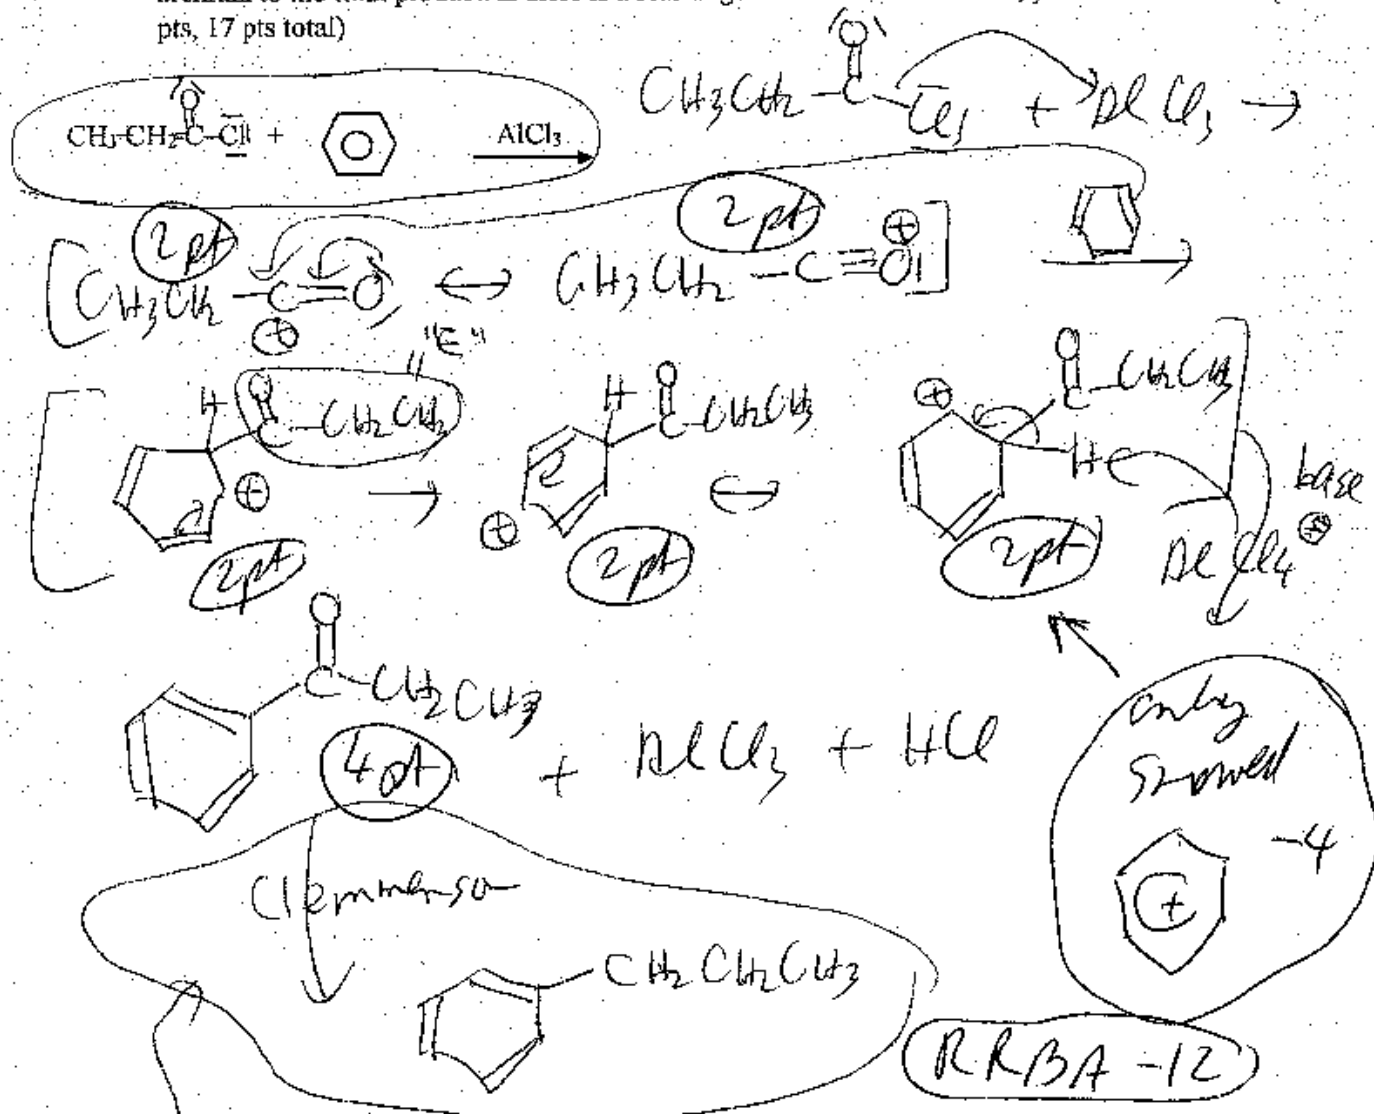 pts, 17 pts total)
CH₃-CH₂-C-Cl + AlCl₃
O
CH₃CH₂-C-Cl + AlCl₃ →
O
2pt 2pt
[CH₃CH₂-C=O ↔ CH₃CH₂-C≡O]
⊕ ⊕
"E"
H O C-CH₂CH₃ ⊕ → H O C-CH₂CH₃ ⊕ ↔ ⊕ O C-CH₂CH₃ H base
2pt 2pt 2pt AlCl₄ ⊕
O
C-CH₂CH₃
4pt + AlCl₃ + HCl
only showed
+ -4
Clemmenson
CH₂CH₂CH₃
RRBA -12